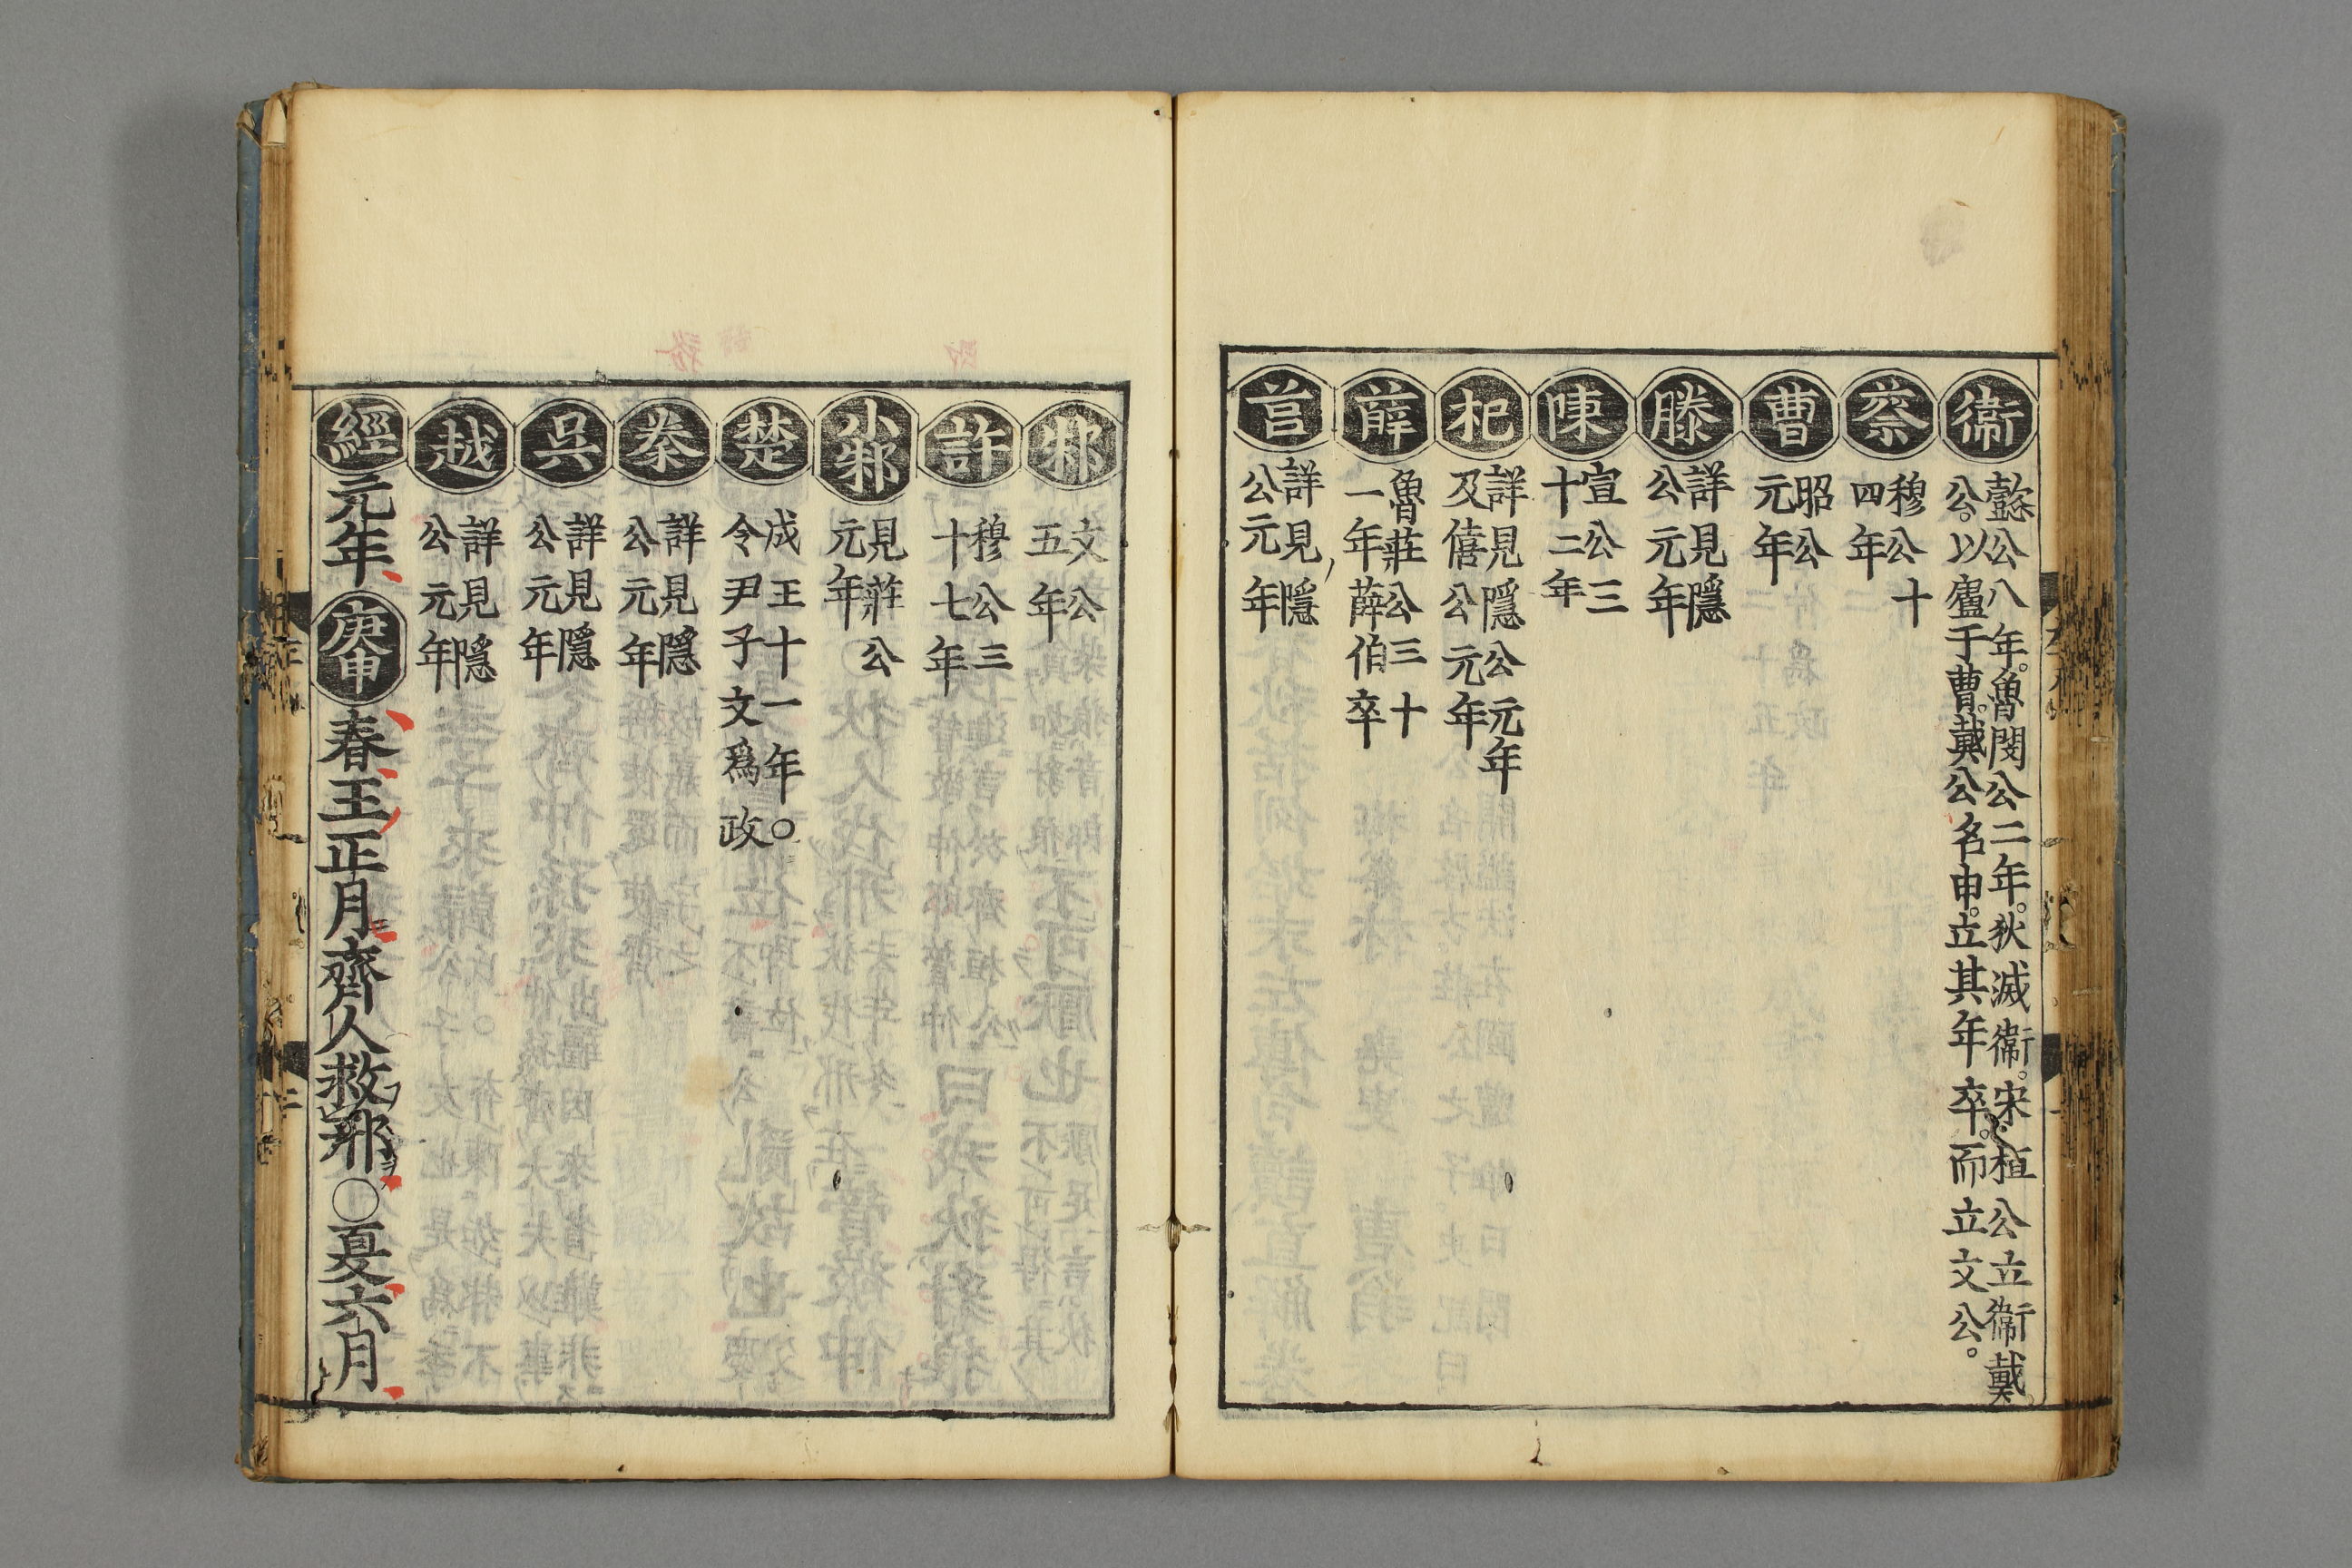 衞
懿公八年。魯閔公二年。狄滅衞。宋桓公立衞戴
公。以廬于曹。戴公名申。立其年卒。而立文公。
蔡
穆公十
四年
曹
昭公
元年
滕
詳見隱
公元年
陳
宣公三
十二年
杞
詳見隱公元年
及僖公元年
薛
魯莊公三十
一年薛伯卒
莒
詳見隱
公元年
邾
文公
五年
許
穆公三
十七年
小邾
見莊公
元年
楚
成王十一年○
令尹子文爲政
秦
詳見隱
公元年
吳
詳見隱
公元年
越
詳見隱
公元年
經元年庚申春王正月齊人救邢○夏六月